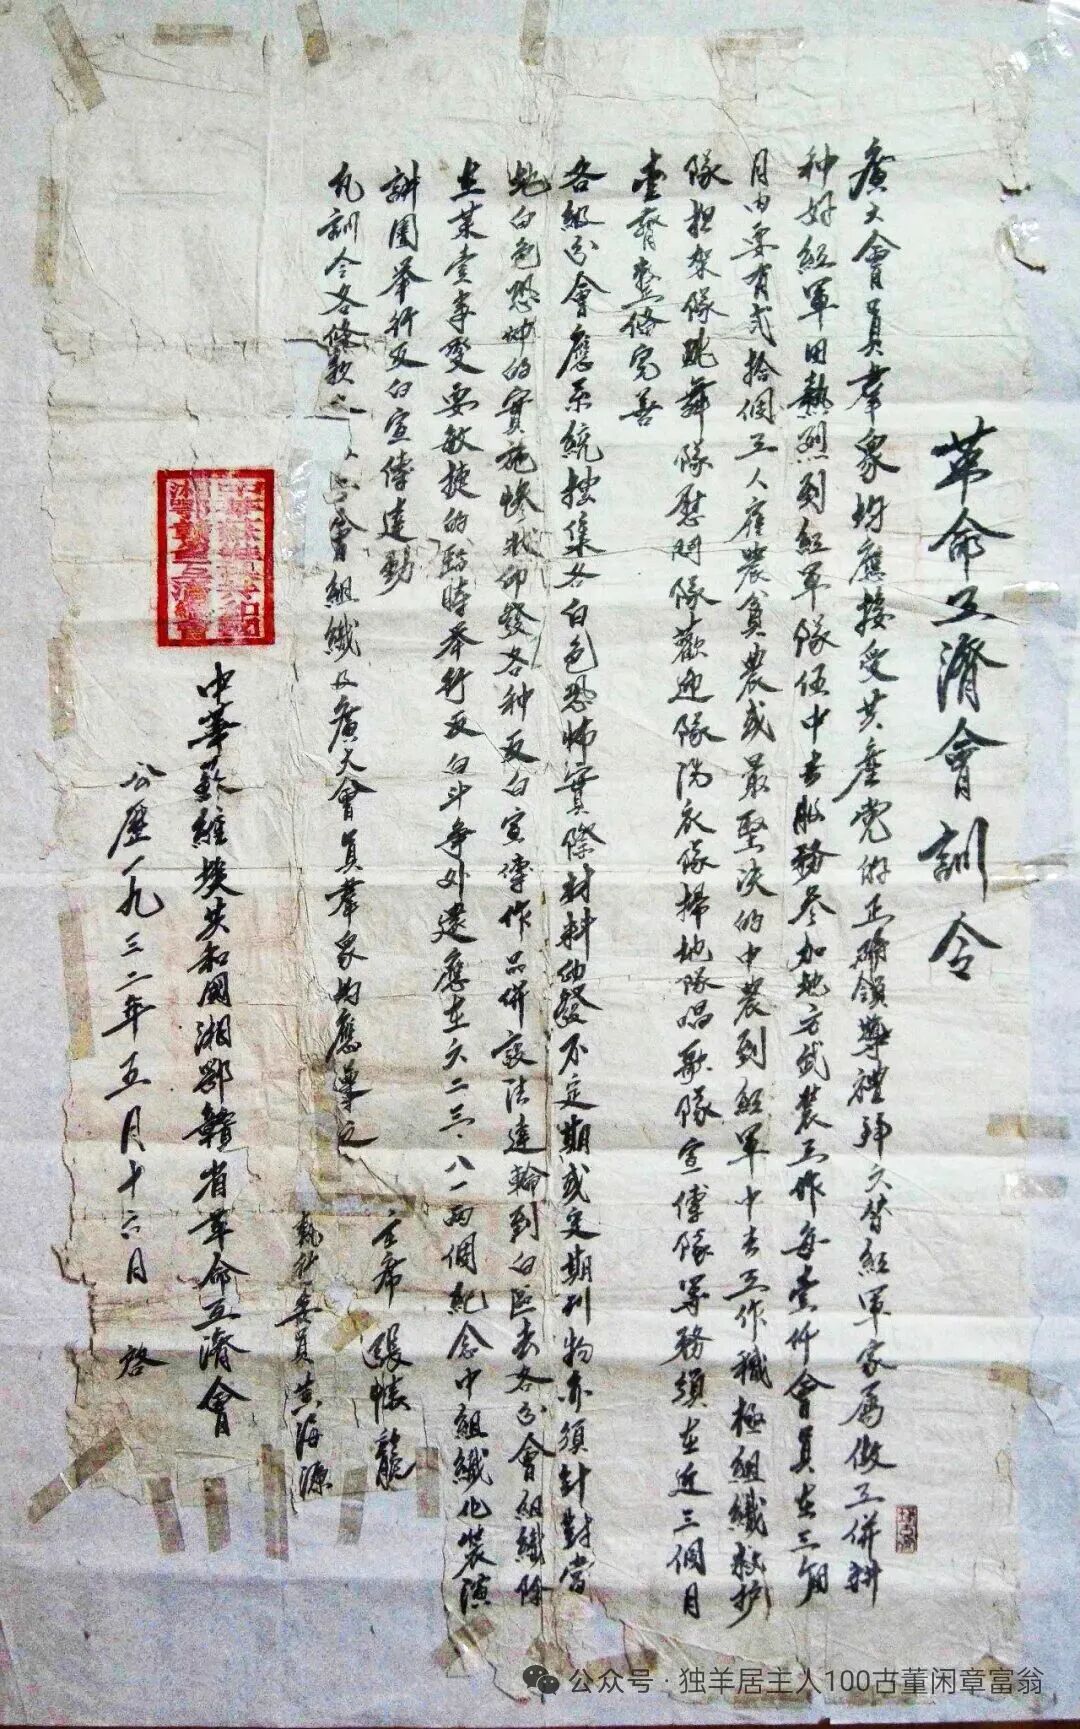 革命互濟會訓令
廣大會員羣眾均應接受共產党的正确領導禮拜六替紅軍家屬做工併耕
种好紅軍田熱烈到紅軍隊伍中去服務參加地方武裝工作每壹仟會員在三個
月內要有式拾個工人雇農貧農或最堅決的中農到紅軍中去工作積極組織救护
隊担架隊跳舞隊慰問隊歡迎隊洗衣隊掃地隊唱歌隊宣傳隊等務須在近三個月
壹齊整俻完善
各級分會應系統搜集各白色恐怖實際材料印發不定期或定期刊物亦須針對當
地白色恐怖的實施慘狀印發各种反白宣傳作品併設法運輸到白區去各分會組織除
在某壹事变要敏捷的臨時举行反白斗争外還應在六二三、八一两個紀念中組織化裝演
講團举行反白宣傳運動
凡訓令各條款 會組織及廣大會員羣眾均應遵之
主席 張 龍
執行委員 黄海源
中華蘇維埃共和國湘鄂贛省革命互濟會
公歷一九三二年五月十六日 啓
公众号·独羊居主人100古董闲章富翁